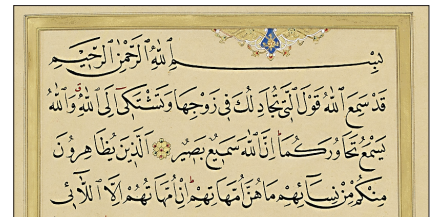 بِسْمِ اللّٰهِ الرَّحْمٰنِ الرَّحٖيمِ
قَدْ سَمِعَ اللّٰهُ قَوْلَ الَّتٖى تُجَادِلُكَ فٖى زَوْجِهَا وَتَشْتَكٖٓى اِلَى اللّٰهِ وَاللّٰهُ
يَسْمَعُ تَحَاوُرَكُمَا اِنَّ اللّٰهَ سَمٖيعٌ بَصٖيرٌ اَلَّذٖينَ يُظَاهِرُونَ
مِنْكُمْ مِنْ نِسَٓائِهِمْ مَاهُنَّ اُمَّهَاتِهِمْ اِنْ اُمَّهَاتُهُمْ اِلَّا اللَّٓائٖى